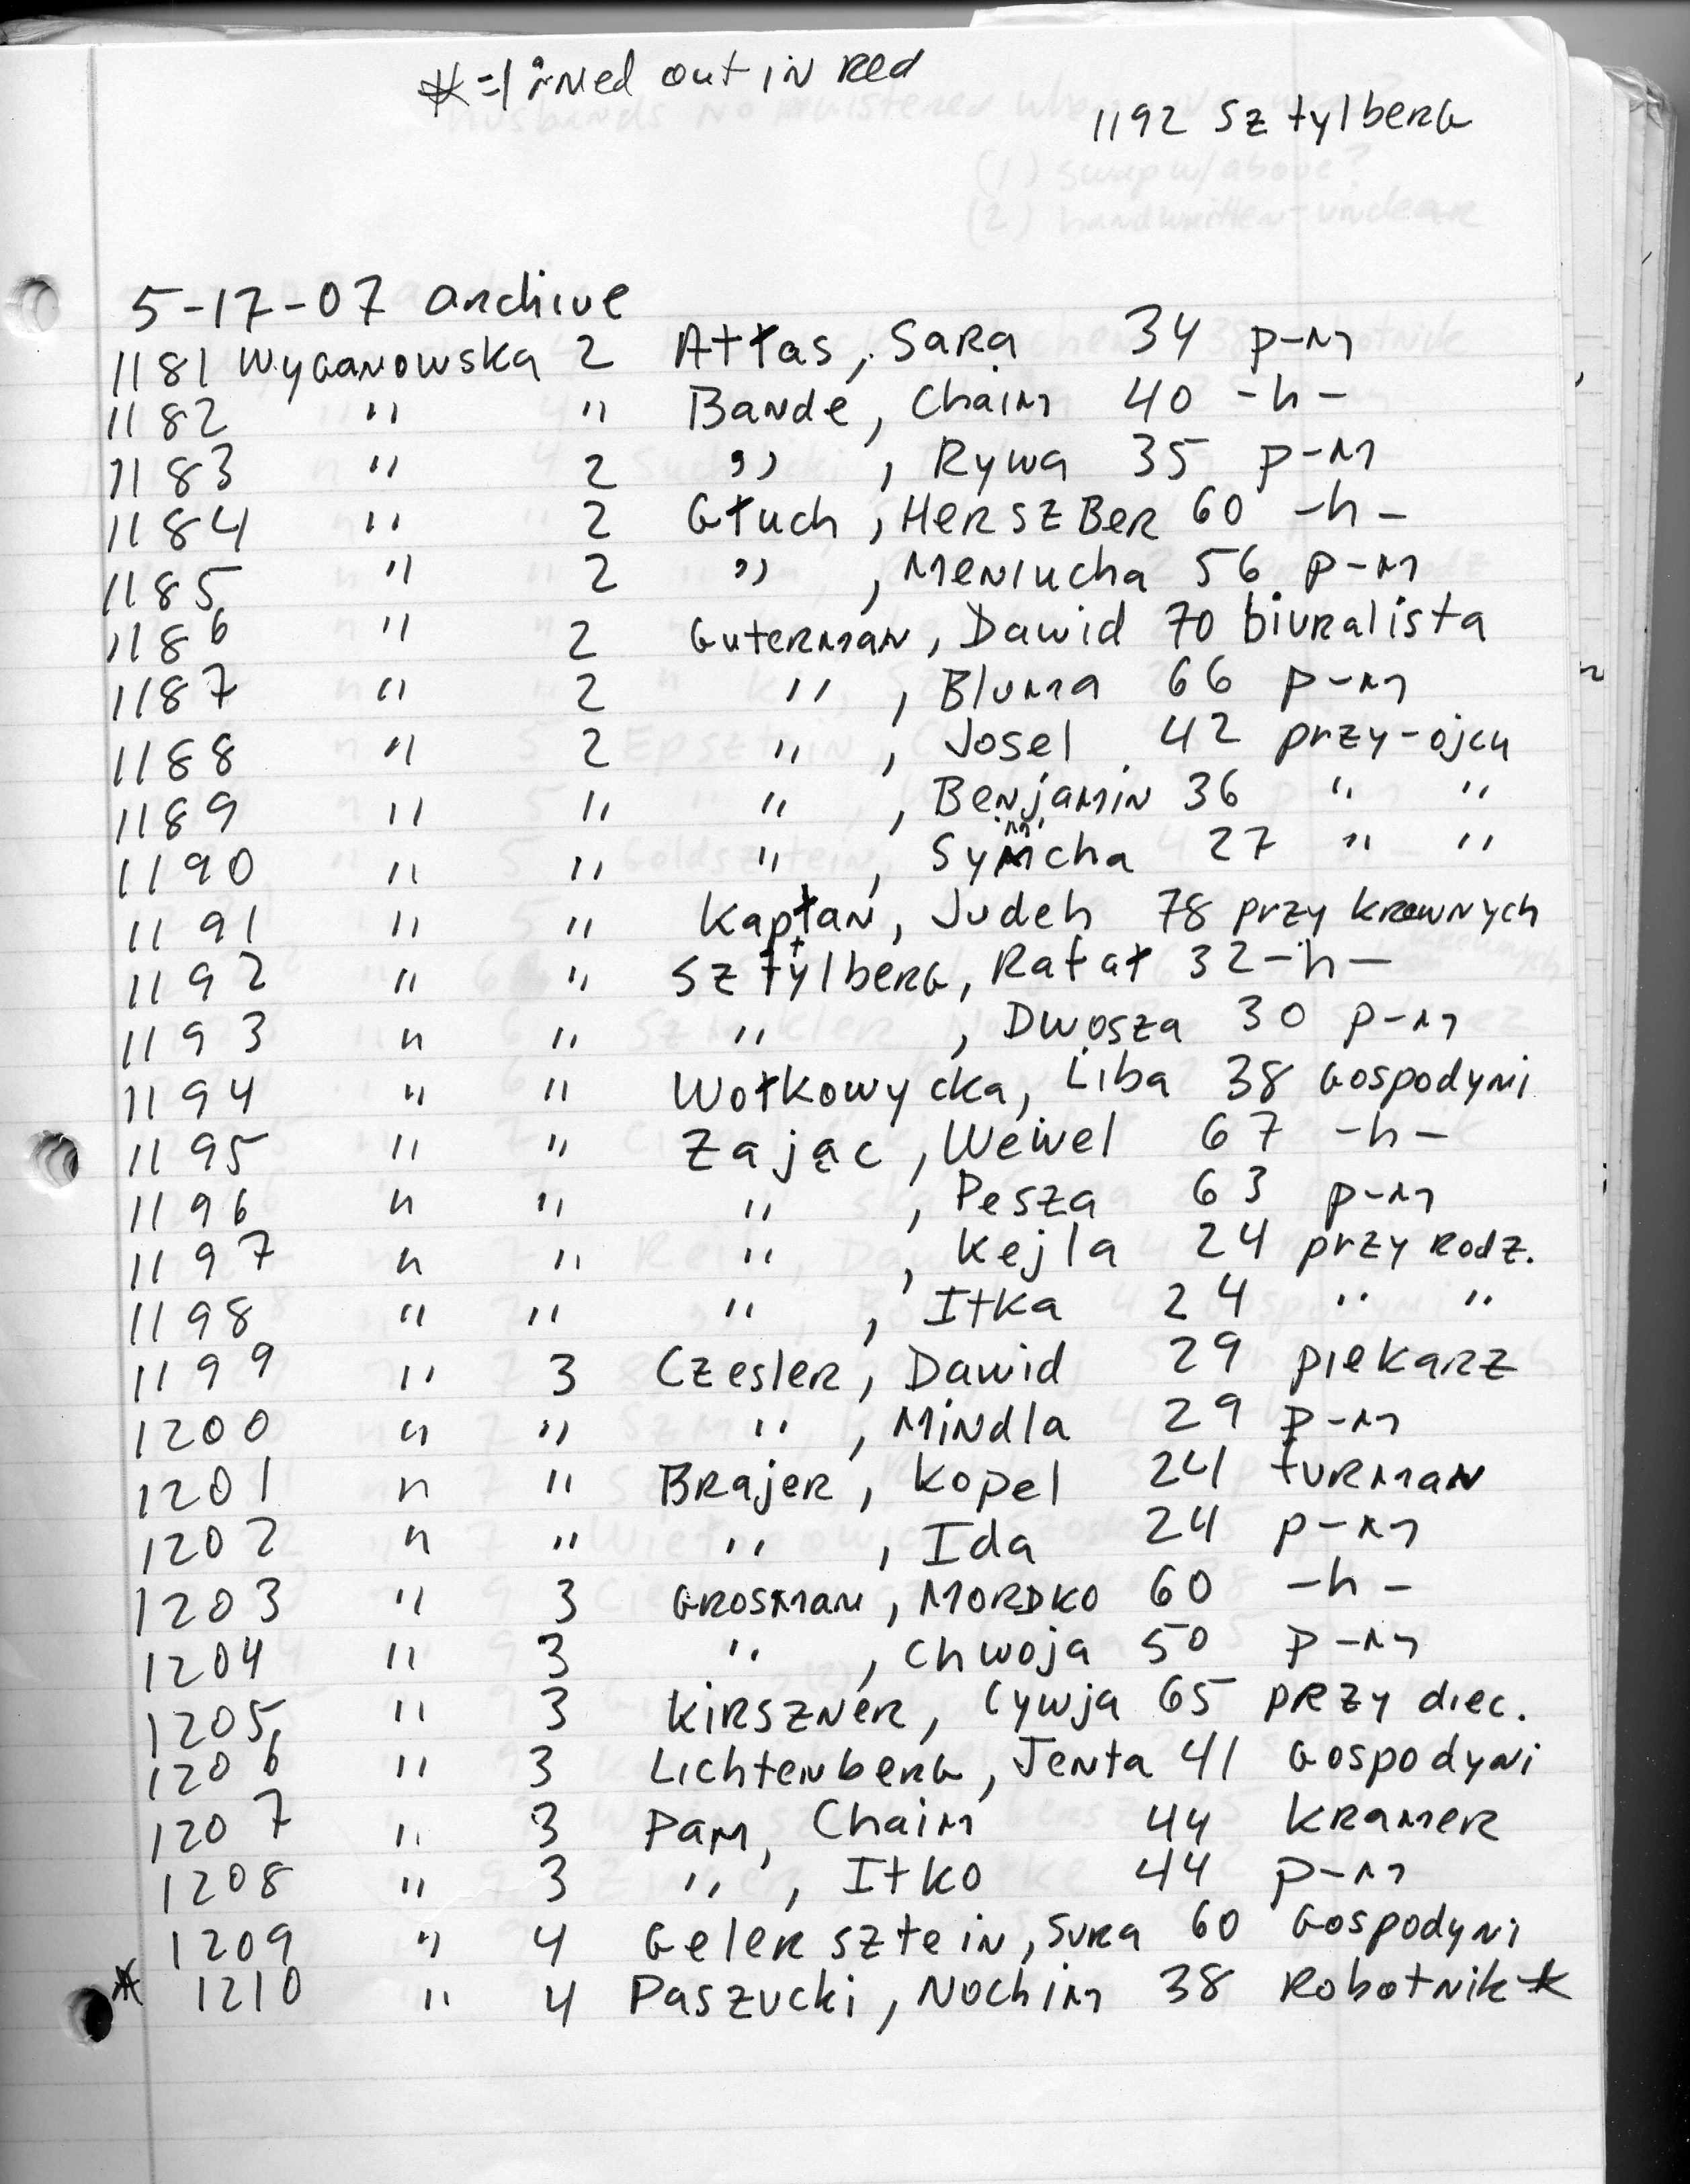 * = lined out in Red
1192 Sztylberg
5-17-07 archive
1181 Wyganowska 2 Atłas, Sara 34 p-m
1182 " " Bande, Chaim 40 -h-
1183 " 2 " , Rywa 35 p-m
1184 " 2 Głuch, Hersz Ber 60 -h-
1185 " 2 " , Meniucha 56 p-m
1186 " 2 Guterman, Dawid 70 biuralista
1187 " 2 " , Bluma 66 p-m
1188 " 2 " , Josel 42 przy-ojcu
1189 " " " , Benjamin 36 " "
1190 " " " , Symcha 27 " "
1191 " " Kapłan, Judeh 78 przy krewnych
1192 " " Sztylberg, Rafał 32 -h-
1193 " " " , Dwosza 30 p-m
1194 " " Wołkowycka, Liba 38 Gospodyni
1195 " " Zając, Wewel 67 -h-
1196 " " " , Pesza 63 p-m
1197 " " " , Kejla 24 przy rodz.
1198 " " " , Itka 24 " "
1199 " 3 Czesler, Dawid 29 piekarz
1200 " " " , Mindla 29 p-m
1201 " " Brajer, Kopel 24 furman
1202 " " " , Ida 24 p-m
1203 " 3 Grosman, Mordko 60 -h-
1204 " 3 " , Chwoja 50 p-m
1205 " 3 Kirszner, Cywja 65 przy diec.
1206 " 3 Lichtenberg, Jenta 41 Gospodyni
1207 " 3 Pam, Chaim 44 kramer
1208 " 3 " , Itko 44 p-m
1209 " 4 Gelersztein, Sura 60 Gospodyni
* 1210 " 4 Paszucki, Nochim 38 Robotnik *